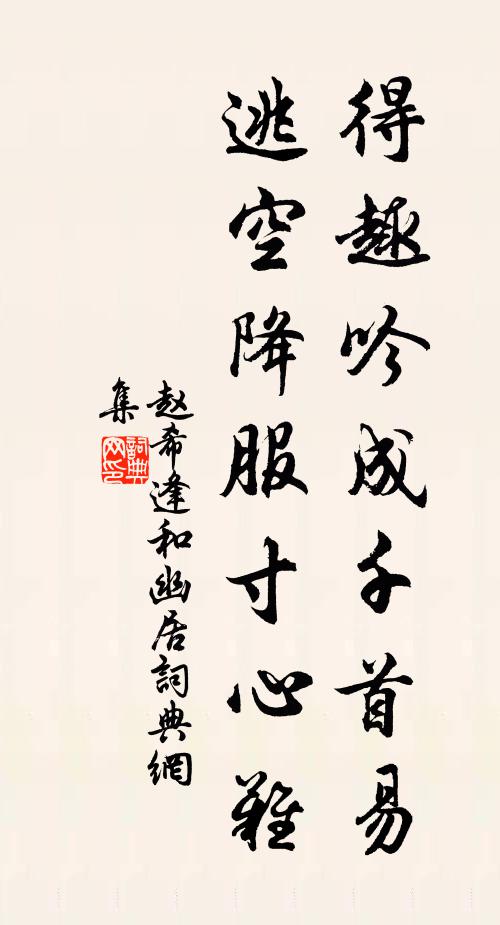 得趣吟成千首易
逃空降服寸心難
赵希逢和幽居詞典網
集
詞典网印